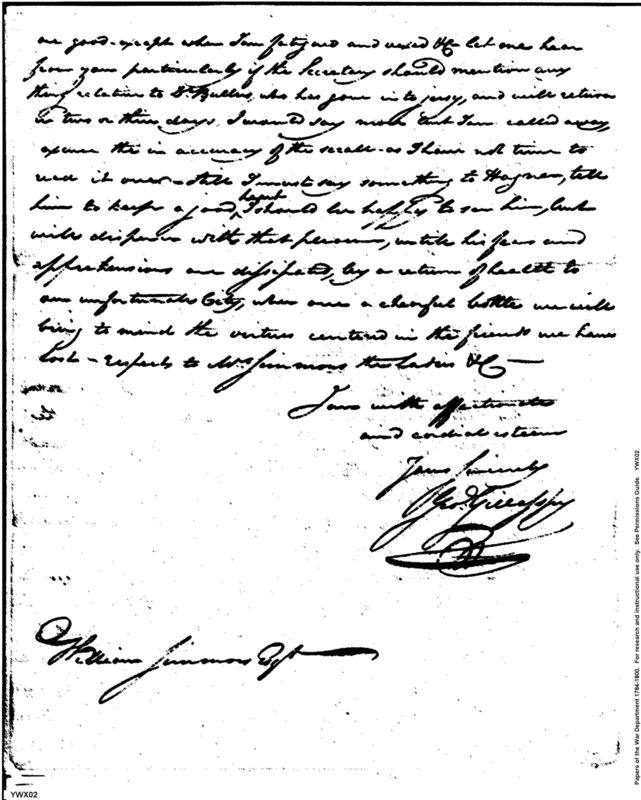 are good - except when I am fatigued and vexed &c let me hear
from you particularly if the Secretary should mention any
thing relative to Dr. Bullus, who has gone in to jersy, and will return
in two or three days. I would say more but I am called away,
excuse the in accuracy of the scrall - as I have not time to
read it over - still I must say something to Hagner, tell
him to keep a good heart, I should be happy to see him, but
will dispense with that pleasure, until his fears and
apprehensions are dissipated, by a return of health to
our unfortunate City, when over a chearful bottle we will
bring to mind the virtues centerd in the friends we have
lost - respects to Mrs Simmons the Ladies &c -
I am with affectionate
and cordial esteem
Yours Sincerely
Geo. Gillasspy
William Simmons Esqr
YWX02
Papers of the War Department 1784-1800. For research and instructional use only. See Permissions Guide. YWX02